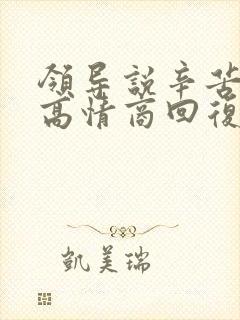 領导說辛苦
高情商回復
凱美瑞